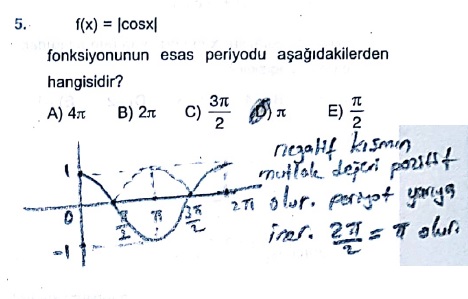 5. f(x) = |cosx|
fonksiyonunun esas periyodu aşağıdakilerden
hangisidir?
A) 4π B) 2π C) 3π/2 D) π E) π/2
negatif kısmın
mutlak değeri pozitif
olur. periyot yarıya
iner. 2π/2 = π olur.
1
0 π/2 π 3π/2 2π
-1